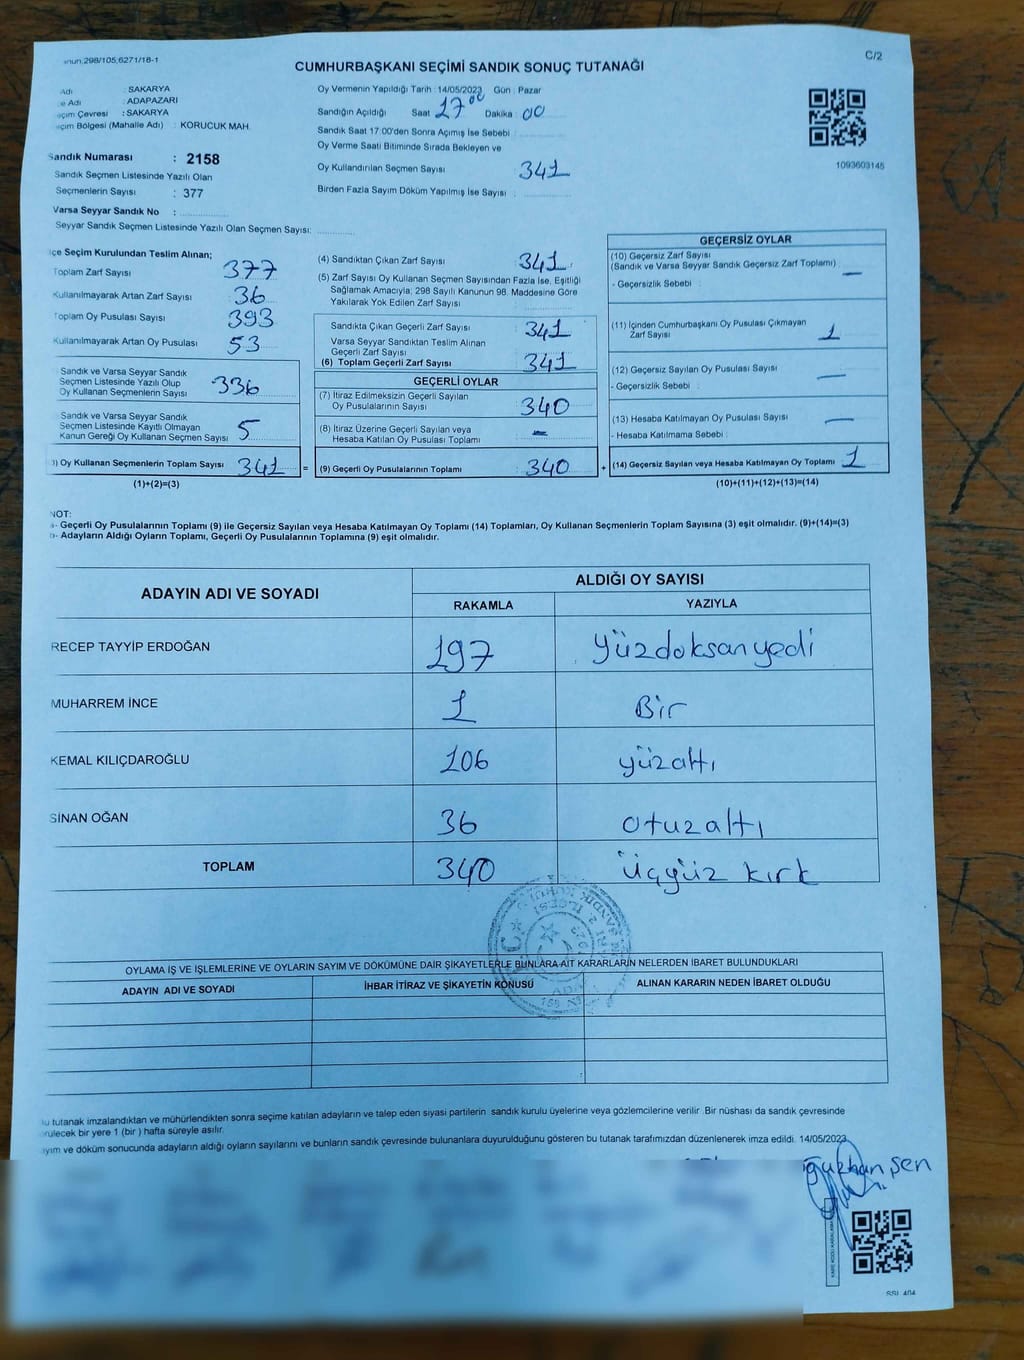 298/105,6271/18-1
C/2
CUMHURBAŞKANI SEÇİMİ SANDIK SONUÇ TUTANAĞI
Adı : SAKARYA
Adı : ADAPAZARI
Çevresi : SAKARYA
Bölgesi (Mahalle Adı) : KORUCUK MAH.
Sandık Numarası : 2158
Sandık Seçmen Listesinde Yazılı Olan
Seçmenlerin Sayısı : 377
Varsa Seyyar Sandık No :
Seyyar Sandık Seçmen Listesinde Yazılı Olan Seçmen Sayısı:
Oy Vermenin Yapıldığı Tarih : 14/05/2023 Gün : Pazar
Sandığın Açıldığı Saat 17⁰⁰ Dakika : 00
Sandık Saat 17.00'den Sonra Açımış İse Sebebi :
Oy Verme Saati Bitiminde Sırada Bekleyen ve
Oy Kullandırılan Seçmen Sayısı 341
Birden Fazla Sayım Döküm Yapılmış İse Sayısı :
1093603145
Seçim Kurulundan Teslim Alınan;
Toplam Zarf Sayısı 377
Kullanılmayarak Artan Zarf Sayısı 36
Toplam Oy Pusulası Sayısı 393
Kullanılmayarak Artan Oy Pusulası 53
Sandık ve Varsa Seyyar Sandık
Seçmen Listesinde Yazılı Olup
Oy Kullanan Seçmenlerin Sayısı 336
Sandık ve Varsa Seyyar Sandık
Seçmen Listesinde Kayıtlı Olmayan
Kanun Gereği Oy Kullanan Seçmen Sayısı 5
) Oy Kullanan Seçmenlerin Toplam Sayısı 341 =
(1)+(2)=(3)
(4) Sandıktan Çıkan Zarf Sayısı 341
(5) Zarf Sayısı Oy Kullanan Seçmen Sayısından Fazla İse, Eşitliği
Sağlamak Amacıyla; 298 Sayılı Kanunun 98. Maddesine Göre
Yakılarak Yok Edilen Zarf Sayısı
Sandıkta Çıkan Geçerli Zarf Sayısı 341
Varsa Seyyar Sandıktan Teslim Alınan
Geçerli Zarf Sayısı
(6) Toplam Geçerli Zarf Sayısı 341
GEÇERLİ OYLAR
(7) İtiraz Edilmeksizin Geçerli Sayılan
Oy Pusulalarının Sayısı 340
(8) İtiraz Üzerine Geçerli Sayılan veya
Hesaba Katılan Oy Pusulası Toplamı –
(9) Geçerli Oy Pusulalarının Toplamı 340 +
GEÇERSİZ OYLAR
(10) Geçersiz Zarf Sayısı
(Sandık ve Varsa Seyyar Sandık Geçersiz Zarf Toplamı) —
- Geçersizlik Sebebi :
(11) İçinden Cumhurbaşkanı Oy Pusulası Çıkmayan
Zarf Sayısı 1
(12) Geçersiz Sayılan Oy Pusulası Sayısı —
- Geçersizlik Sebebi :
(13) Hesaba Katılmayan Oy Pusulası Sayısı —
- Hesaba Katılmama Sebebi :
(14) Geçersiz Sayılan veya Hesaba Katılmayan Oy Toplamı 1
(10)+(11)+(12)+(13)=(14)
NOT:
- Geçerli Oy Pusulalarının Toplamı (9) ile Geçersiz Sayılan veya Hesaba Katılmayan Oy Toplamı (14) Toplamları, Oy Kullanan Seçmenlerin Toplam Sayısına (3) eşit olmalıdır. (9)+(14)=(3)
- Adayların Aldığı Oyların Toplamı, Geçerli Oy Pusulalarının Toplamına (9) eşit olmalıdır.
ADAYIN ADI VE SOYADI ALDIĞI OY SAYISI
RAKAMLA YAZIYLA
RECEP TAYYİP ERDOĞAN 197 yüzdoksanyedi
MUHARREM İNCE 1 Bir
KEMAL KILIÇDAROĞLU 106 yüzaltı
SİNAN OĞAN 36 otuzaltı
TOPLAM 340 üçyüz kırk
OYLAMA İŞ VE İŞLEMLERİNE VE OYLARIN SAYIM VE DÖKÜMÜNE DAİR ŞİKAYETLERLE BUNLARA AİT KARARLARIN NELERDEN İBARET BULUNDUKLARI
ADAYIN ADI VE SOYADI İHBAR İTİRAZ VE ŞİKAYETİN KONUSU ALINAN KARARIN NEDEN İBARET OLDUĞU
tutanak imzalandıktan ve mühürlendikten sonra seçime katılan adayların ve talep eden siyasi partilerin sandık kurulu üyelerine veya gözlemcilerine verilir. Bir nüshası da sandık çevresinde
bir yere 1 (bir) hafta süreyle asılır.
ve döküm sonucunda adayların aldığı oyların sayılarını ve bunların sandık çevresinde bulunanlara duyurulduğunu gösteren bu tutanak tarafımızdan düzenlenerek imza edildi. 14/05/2023
Şen